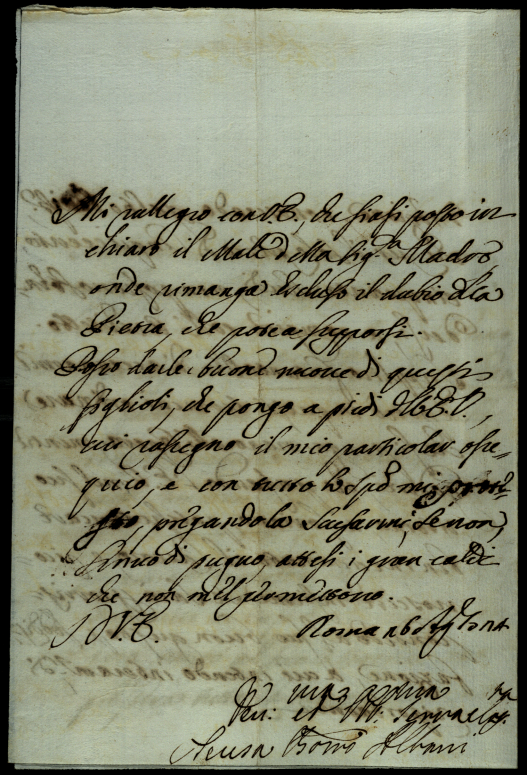 Mi rallegro con V.E., che siasi posto in
chiaro il Male della Sig.ra Madre
onde rimanga escluso il dubio d'la
Pietra, che potea supporsi.
Posso darle buone nuove di questi
figlioli, che pongo a piedi dell'E.V.,
cui rassegno il mio particolar osse=
quio, e con tutto lo Sp.o mi
pregandola scusarmi, se non
scrivo di pugno, attesi i gran caldi
che non me'l permettono.
D V.E. Roma
Teresa Borro Albani